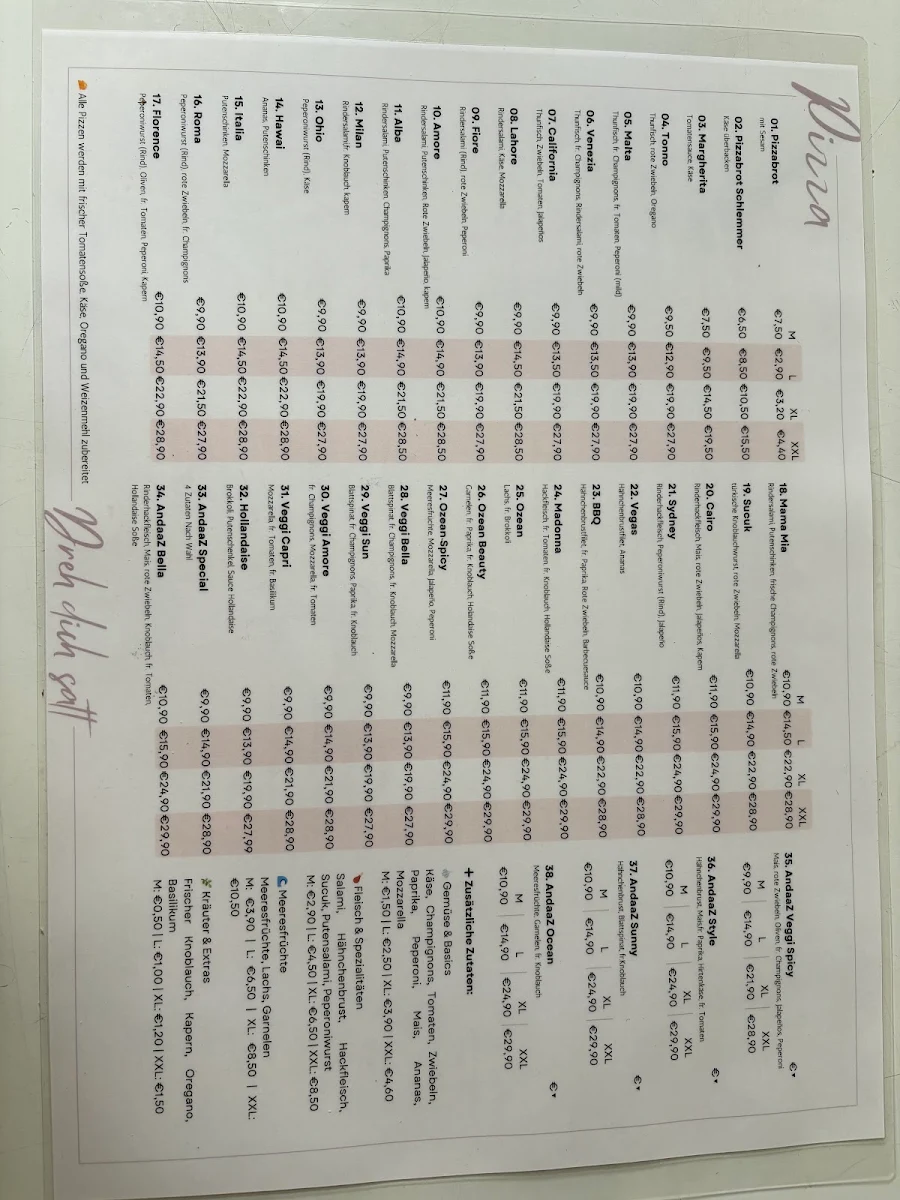 Pizza
M L XL XXL
01. Pizzabrot €7,50 €2,90 €3,20 €4,40
mit Sesam
02. Pizzabrot Schlemmer €6,50 €8,50 €10,50 €15,50
Käse überbacken
03. Margherita €7,50 €9,50 €14,50 €19,50
Tomatensauce, Käse
04. Tonno €9,50 €12,90 €19,90 €27,90
Thunfisch, rote Zwiebeln, Oregano
05. Malta €9,90 €13,90 €19,90 €27,90
Thunfisch, fr. Champignons, fr. Tomaten, Peperoni (mild)
06. Venezia €9,90 €13,50 €19,90 €27,90
Thunfisch, fr. Champignons, Rindersalami, rote Zwiebeln
07. California €9,90 €13,50 €19,90 €27,90
Thunfisch, Zwiebeln, Tomaten, Jalapeños
08. Lahore €9,90 €14,50 €21,50 €28,50
Rindersalami, Käse, Mozzarella
09. Fiore €9,90 €13,90 €19,90 €27,90
Rindersalami (Rind), rote Zwiebeln, Peperoni
10. Amore €10,90 €14,90 €21,50 €28,50
Rindersalami, Putenschinken, Rote Zwiebeln, Jalapeño, kapern
11. Alba €10,90 €14,90 €21,50 €28,50
Rindersalami, Putenschinken, Champignons, Paprika
12. Milan €9,90 €13,90 €19,90 €27,90
Rindersalami,fr. Knoblauch, kapern
13. Ohio €9,90 €13,90 €19,90 €27,90
Peperoniwurst (Rind), Käse
14. Hawai €10,90 €14,50 €22,90 €28,90
Ananas, Putenschinken
15. Italia €10,90 €14,50 €22,90 €28,90
Putenschinken, Mozzarella
16. Roma €9,90 €13,90 €21,50 €27,90
Peperoniwurst (Rind), rote Zwiebeln, fr. Champignons
17. Florence €10,90 €14,50 €22,90 €28,90
Peperoniwurst (Rind), Oliven, fr. Tomaten, Peperoni, Kapern
Alle Pizzen werden mit frischer Tomatensoße, Käse, Oregano und Weizenmehl zubereitet
M L XL XXL
18. Mama Mia €10,90 €14,50 €22,90 €28,90
Rindersalami, Putenschinken, frische Champignons, rote Zwiebeln
19. Sucuk €10,90 €14,90 €22,90 €28,90
türkische Knoblauchwurst, rote Zwiebeln, Mozzarella
20. Cairo €11,90 €15,90 €24,90 €29,90
Rinderhackfleisch, Mais, rote Zwiebeln, Jalapeños, Kapern
21. Sydney €11,90 €15,90 €24,90 €29,90
Rinderhackfleisch, Peperoniwurst (Rind), Jalapeño
22. Vegas €10,90 €14,90 €22,90 €28,90
Hähnchenbrustfilet, Ananas
23. BBQ €10,90 €14,90 €22,90 €28,90
Hähnchenbrustfilet, fr. Paprika, Rote Zwiebeln, Barbecuesauce
24. Madonna €11,90 €15,90 €24,90 €29,90
Hackfleisch, fr. Tomaten, fr. Knoblauch, Hollandaise Soße
25. Ozean €11,90 €15,90 €24,90 €29,90
Lachs, fr. Brokkoli
26. Ozean Beauty €11,90 €15,90 €24,90 €29,90
Garnelen, fr. Paprika, fr. Knoblauch, Hollandaise Soße
27. Ozean-Spicy €11,90 €15,90 €24,90 €29,90
Meeresfrüchte, Mozzarella, Jalapeño, Peperoni
28. Veggi Bella €9,90 €13,90 €19,90 €27,90
Blattspinat, fr. Champignons, fr. Knoblauch, Mozzarella
29. Veggi Sun €9,90 €13,90 €19,90 €27,90
Blattspinat, fr. Champignons, Paprika, fr. Knoblauch
30. Veggi Amore €9,90 €14,90 €21,90 €28,90
fr. Champignons, Mozzarella, fr. Tomaten
31. Veggi Capri €9,90 €14,90 €21,90 €28,90
Mozzarella, fr. Tomaten, fr. Basilikum
32. Hollandaise €9,90 €13,90 €19,90 €27,99
Brokkoli, Putenschenkel, Sauce Hollandaise
33. AndaaZ Special €9,90 €14,90 €21,90 €28,90
4 Zutaten Nach Wahl
34. AndaaZ Bella €10,90 €15,90 €24,90 €29,90
Rinderhackfleisch, Mais, rote Zwiebeln, Knoblauch, fr. Tomaten,
Hollandaise Soße
Dreh dich satt
35. AndaaZ Veggi Spicy €
Mais, rote Zwiebeln, Oliven, fr. Champignons, jalapeños, Peperoni
M L XL XXL
€9,90 €14,90 €21,90 €28,90
36. AndaaZ Style €
Hähnchenbrust, Mais,fr. Paprika, Hirtenkäse, fr. Tomaten
M L XL XXL
€10,90 €14,90 €24,90 €29,90
37. AndaaZ Sunny €
Hähnchenbrust, Blattspinat, fr.Knoblauch
M L XL XXL
€10,90 €14,90 €24,90 €29,90
38. AndaaZ Ocean €
Meeresfrüchte, Garnelen, fr. Knoblauch
M L XL XXL
€10,90 €14,90 €24,90 €29,90
+ Zusätzliche Zutaten:
Gemüse & Basics
Käse, Champignons, Tomaten, Zwiebeln,
Paprika, Peperoni, Mais, Ananas,
Mozzarella
M: €1,50 | L: €2,50 | XL: €3,90 | XXL: €4,60
Fleisch & Spezialitäten
Salami, Hähnchenbrust, Hackfleisch,
Sucuk, Putensalami, Peperoniwurst
M: €2,90 | L: €4,50 | XL: €6,50 | XXL: €8,50
Meeresfrüchte
Meeresfrüchte, Lachs, Garnelen
M: €3,90 | L: €6,50 | XL: €8,50 | XXL:
€10,50
Kräuter & Extras
Frischer Knoblauch, Kapern, Oregano,
Basilikum
M: €0,50 | L: €1,00 | XL: €1,20 | XXL: €1,50